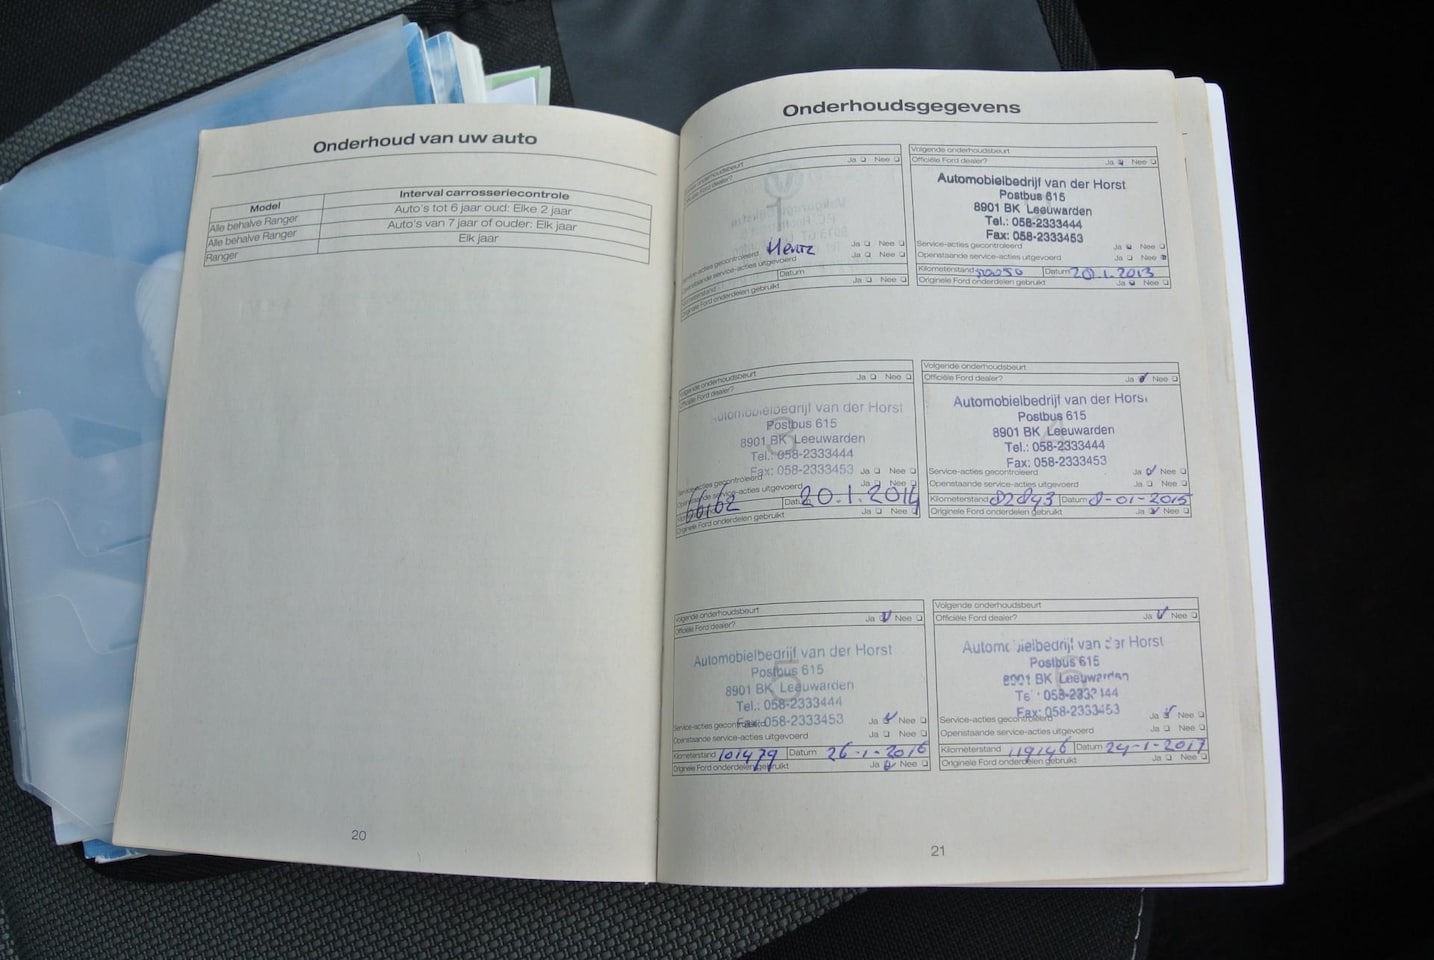 Onderhoud van uw auto
Model Interval carrosseriecontrole
Alle behalve Ranger Auto's tot 6 jaar oud: Elke 2 jaar
Alle behalve Ranger Auto's van 7 jaar of ouder: Elk jaar
Ranger Elk jaar
20
Onderhoudsgegevens
Officiële Ford dealer? Ja Nee
Hertz
Service-acties gecontroleerd Ja Nee
Openstaande service-acties uitgevoerd Ja Nee
Kilometerstand Datum
Originele Ford onderdelen gebruikt Ja Nee
Volgende onderhoudsbeurt
Officiële Ford dealer? Ja Nee
Automobielbedrijf van der Horst
Postbus 615
8901 BK Leeuwarden
Tel.: 058-2333444
Fax: 058-2333453
Service-acties gecontroleerd Ja Nee
Openstaande service-acties uitgevoerd Ja Nee
Kilometerstand Datum 20.1.2013
Originele Ford onderdelen gebruikt Ja Nee
Volgende onderhoudsbeurt
Officiële Ford dealer? Ja Nee
Automobielbedrijf van der Horst
Postbus 615
8901 BK Leeuwarden
Tel.: 058-2333444
Fax: 058-2333453
Service-acties gecontroleerd Ja Nee
Openstaande service-acties uitgevoerd Ja Nee
66162 Datum 20.1.2014
Originele Ford onderdelen gebruikt Ja Nee
Volgende onderhoudsbeurt
Officiële Ford dealer? Ja Nee
Automobielbedrijf van der Horst
Postbus 615
8901 BK Leeuwarden
Tel.: 058-2333444
Fax: 058-2333453
Service-acties gecontroleerd Ja Nee
Openstaande service-acties uitgevoerd Ja Nee
Kilometerstand 82843 Datum 8-01-2015
Originele Ford onderdelen gebruikt Ja Nee
Volgende onderhoudsbeurt
Officiële Ford dealer? Ja Nee
Automobielbedrijf van der Horst
5
Postbus 615
8901 BK Leeuwarden
Tel.: 058-2333444
Fax: 058-2333453
Service-acties gecontroleerd Ja Nee
Openstaande service-acties uitgevoerd Ja Nee
Kilometerstand 101479 Datum 26-1-2016
Originele Ford onderdelen gebruikt Ja Nee
Volgende onderhoudsbeurt
Officiële Ford dealer? Ja Nee
Automobielbedrijf van der Horst
Postbus 615
8901 BK Leeuwarden
058-2333444
Fax: 058-2333453
Service-acties gecontroleerd Ja Nee
Openstaande service-acties uitgevoerd Ja Nee
Kilometerstand 119146 Datum 24-1-2017
Originele Ford onderdelen gebruikt Ja Nee
21